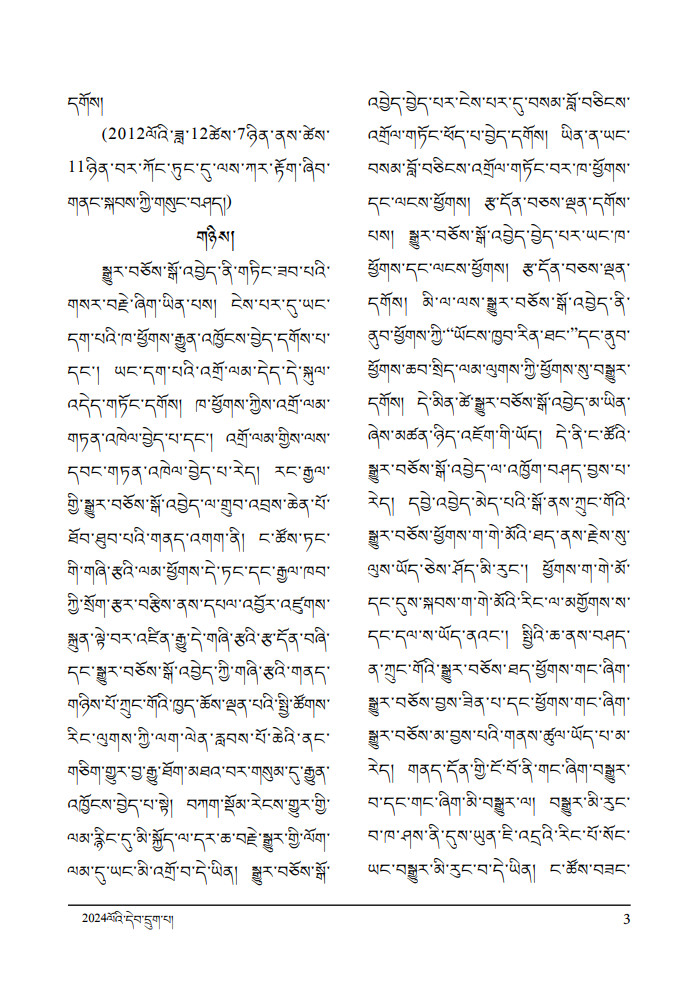 དགོས།
(2012ལོའི་ཟླ་12ཚེས་7ཉིན་ནས་ཚེས་
11ཉིན་བར་ཀོང་ཏུང་དུ་ལས་ཀར་རྟོག་ཞིབ་
གནང་སྐབས་ཀྱི་གསུང་བཤད།)
གཉིས།
སྒྱུར་བཅོས་སྒོ་འབྱེད་ནི་གཏིང་ཟབ་པའི་
གསར་བརྗེ་ཞིག་ཡིན་པས། ངེས་པར་དུ་ཡང་
དག་པའི་ཁ་ཕྱོགས་རྒྱུན་འཁྱོངས་བྱེད་དགོས་པ་
དང་། ཡང་དག་པའི་འགྲོ་ལམ་དེད་དེ་སྐུལ་
འདེད་གཏོང་དགོས། ཁ་ཕྱོགས་ཀྱིས་འགྲོ་ལམ་
གཏན་འཁེལ་བྱེད་པ་དང་། འགྲོ་ལམ་གྱིས་ལས་
དབང་གཏན་འཁེལ་བྱེད་པ་རེད། རང་རྒྱལ་
གྱི་སྒྱུར་བཅོས་སྒོ་འབྱེད་ལ་གྲུབ་འབྲས་ཆེན་པོ་
ཐོབ་ཐུབ་པའི་གནད་འགག་ནི། ང་ཚོས་ཏང་
གི་གཞི་རྩའི་ལམ་ཕྱོགས་དེ་ཏང་དང་རྒྱལ་ཁབ་
ཀྱི་སྲོག་རྩར་བརྩིས་ནས་དཔལ་འབྱོར་འཛུགས་
སྐྲུན་ལྟེ་བར་འཛིན་རྒྱུ་དེ་གཞི་རྩའི་རྩ་དོན་བཞི་
དང་སྒྱུར་བཅོས་སྒོ་འབྱེད་ཀྱི་གཞི་རྩའི་གནད་
གཉིས་པོ་ཀྲུང་གོའི་ཁྱད་ཆོས་ལྡན་པའི་སྤྱི་ཚོགས་
རིང་ལུགས་ཀྱི་ལག་ལེན་རླབས་པོ་ཆེའི་ནང་
གཅིག་གྱུར་བྱ་རྒྱུ་ཐོག་མཐའ་བར་གསུམ་དུ་རྒྱུན་
འཁྱོངས་བྱེད་པ་སྟེ། བཀག་སྡོམ་རེངས་གྱུར་གྱི་
ལམ་རྙིང་དུ་མི་སྐྱོད་ལ་དར་ཆ་བརྗེ་སྒྱུར་གྱི་ལོག་
ལམ་དུ་ཡང་མི་འགྲོ་བ་དེ་ཡིན། སྒྱུར་བཅོས་སྒོ་
འབྱེད་བྱེད་པར་ངེས་པར་དུ་བསམ་བློ་བཅིངས་
འགྲོལ་གཏོང་ཕོད་པ་བྱེད་དགོས། ཡིན་ན་ཡང་
བསམ་བློ་བཅིངས་འགྲོལ་གཏོང་བར་ཁ་ཕྱོགས་
དང་ལངས་ཕྱོགས། རྩ་དོན་བཅས་ལྡན་དགོས་
པས། སྒྱུར་བཅོས་སྒོ་འབྱེད་བྱེད་པར་ཡང་ཁ་
ཕྱོགས་དང་ལངས་ཕྱོགས། རྩ་དོན་བཅས་ལྡན་
དགོས། མི་ལ་ལས་སྒྱུར་བཅོས་སྒོ་འབྱེད་ནི་
ནུབ་ཕྱོགས་ཀྱི་“ཡོངས་ཁྱབ་རིན་ཐང་”དང་ནུབ་
ཕྱོགས་ཆབ་སྲིད་ལམ་ལུགས་ཀྱི་ཕྱོགས་སུ་བསྒྱུར་
དགོས། དེ་མིན་ཚེ་སྒྱུར་བཅོས་སྒོ་འབྱེད་མ་ཡིན་
ཞེས་མཚན་ཉིད་འཇོག་གི་ཡོད། དེ་ནི་ང་ཚོའི་
སྒྱུར་བཅོས་སྒོ་འབྱེད་ལ་འཁྱོག་བཤད་བྱས་པ་
རེད། དབྱེ་འབྱེད་མེད་པའི་སྒོ་ནས་ཀྲུང་གོའི་
སྒྱུར་བཅོས་ཕྱོགས་ག་གེ་མོའི་ཐད་ནས་རྗེས་སུ་
ལུས་ཡོད་ཅེས་ཤོད་མི་རུང་། ཕྱོགས་ག་གེ་མོ་
དང་དུས་སྐབས་ག་གེ་མོའི་རིང་ལ་མགྱོགས་ས་
དང་དལ་ས་ཡོད་ནའང་། སྤྱིའི་ཆ་ནས་བཤད་
ན་ཀྲུང་གོའི་སྒྱུར་བཅོས་ཐད་ཕྱོགས་གང་ཞིག་
སྒྱུར་བཅོས་བྱས་ཟིན་པ་དང་ཕྱོགས་གང་ཞིག་
སྒྱུར་བཅོས་མ་བྱས་པའི་གནས་ཚུལ་ཡོད་པ་མ་
རེད། གནད་དོན་གྱི་ངོ་བོ་ནི་གང་ཞིག་བསྒྱུར་
བ་དང་གང་ཞིག་མི་བསྒྱུར་ལ། བསྒྱུར་མི་རུང་
བ་ཁ་ཤས་ནི་དུས་ཡུན་ཇི་འདྲའི་རིང་པོ་སོང་
ཡང་བསྒྱུར་མི་རུང་བ་དེ་ཡིན། ང་ཚོས་བཟང་
2024ལོའི་དེབ་དྲུག་པ།
3